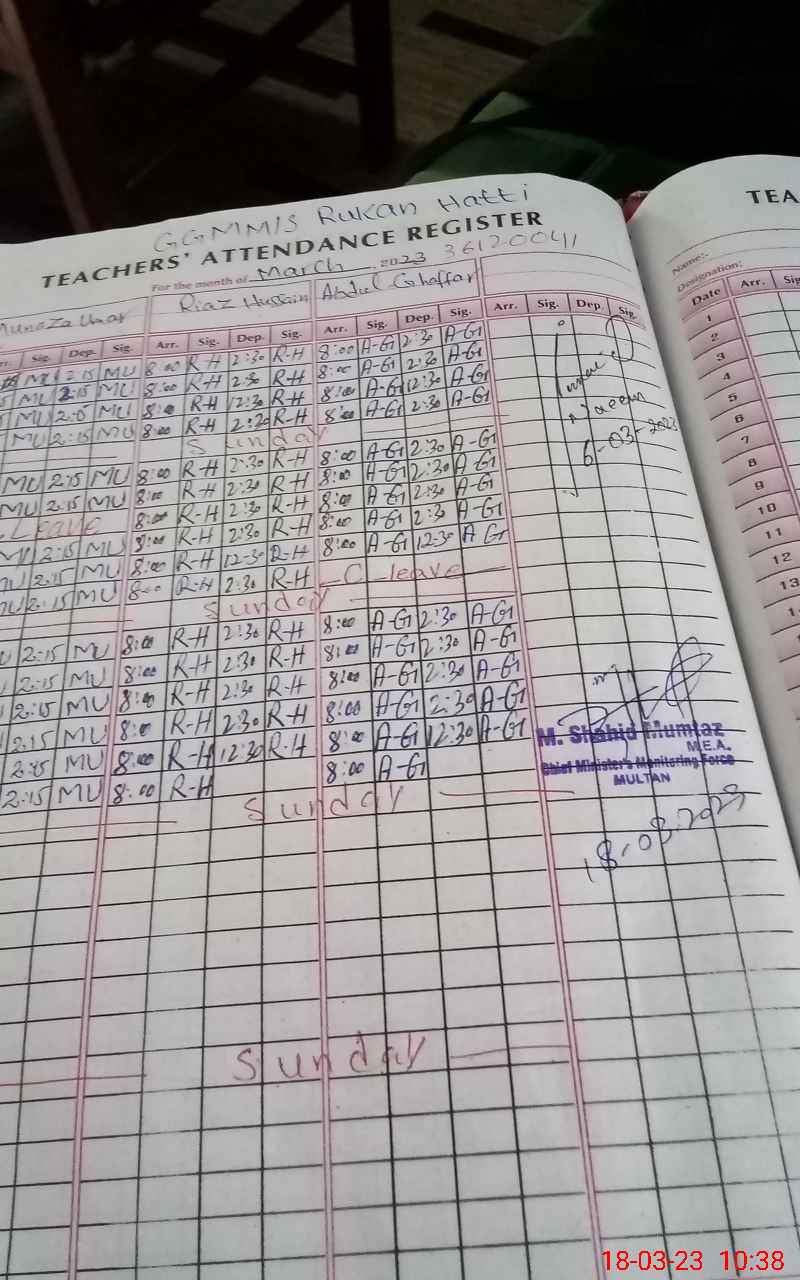 GGMMIS Rukan Hatti
TEACHERS' ATTENDANCE REGISTER
For the month of March 2023 36120041
Munaza Umar Riaz Hussain Abdul Ghaffar
Sig. Dep. Sig. Arr. Sig. Dep. Sig. Arr. Sig. Dep. Sig. Arr. Sig. Dep. Sig.
MU 2:15 MU 8:00 R-H 2:30 R-H 8:00 A-G 2:30 A-G
MU 2:15 MU 8:00 R-H 2:30 R-H 8:00 A-G 2:30 A-G
MU 2:05 MU 8:00 R-H 12:30 R-H 8:00 A-G 12:30 A-G
MU 2:15 MU 8:00 R-H 2:30 R-H 8:00 A-G 2:30 A-G
Sunday
MU 2:15 MU 8:00 R-H 2:30 R-H 8:00 A-G 2:30 A-G
MU 2:15 MU 8:00 R-H 2:30 R-H 8:00 A-G 2:30 A-G
Leave 8:00 R-H 2:30 R-H 8:00 A-G 2:30 A-G
MU 2:15 MU 8:00 R-H 2:30 R-H 8:00 A-G 2:30 A-G
MU 2:15 MU 8:00 R-H 12-30 R-H 8:00 A-G 12-30 A-G
MU 2:15 MU 8:00 R-H 2:30 R-H C-leave
Sunday
2:15 MU 8:00 R-H 2:30 R-H 8:00 A-G 2:30 A-G
2:15 MU 8:00 R-H 2:30 R-H 8:00 A-G 2:30 A-G
2:15 MU 8:00 R-H 2:30 R-H 8:00 A-G 2:30 A-G
2:15 MU 8:00 R-H 2:30 R-H 8:00 A-G 2:30 A-G
2:15 MU 8:00 R-H 12:30 R-H 8:00 A-G 12:30 A-G
2:15 MU 8:00 R-H 8:00 A-G
Sunday
Sunday
Naeem
6-03-2023
M. Shahid Mumtaz
M.E.A.
Chief Minister's Monitoring Force
MULTAN
18-03-2023
TEA
Name:-
Designation:
Date Arr. Sig
1
2
3
4
5
6
7
8
9
10
11
12
13
18-03-23 10:38